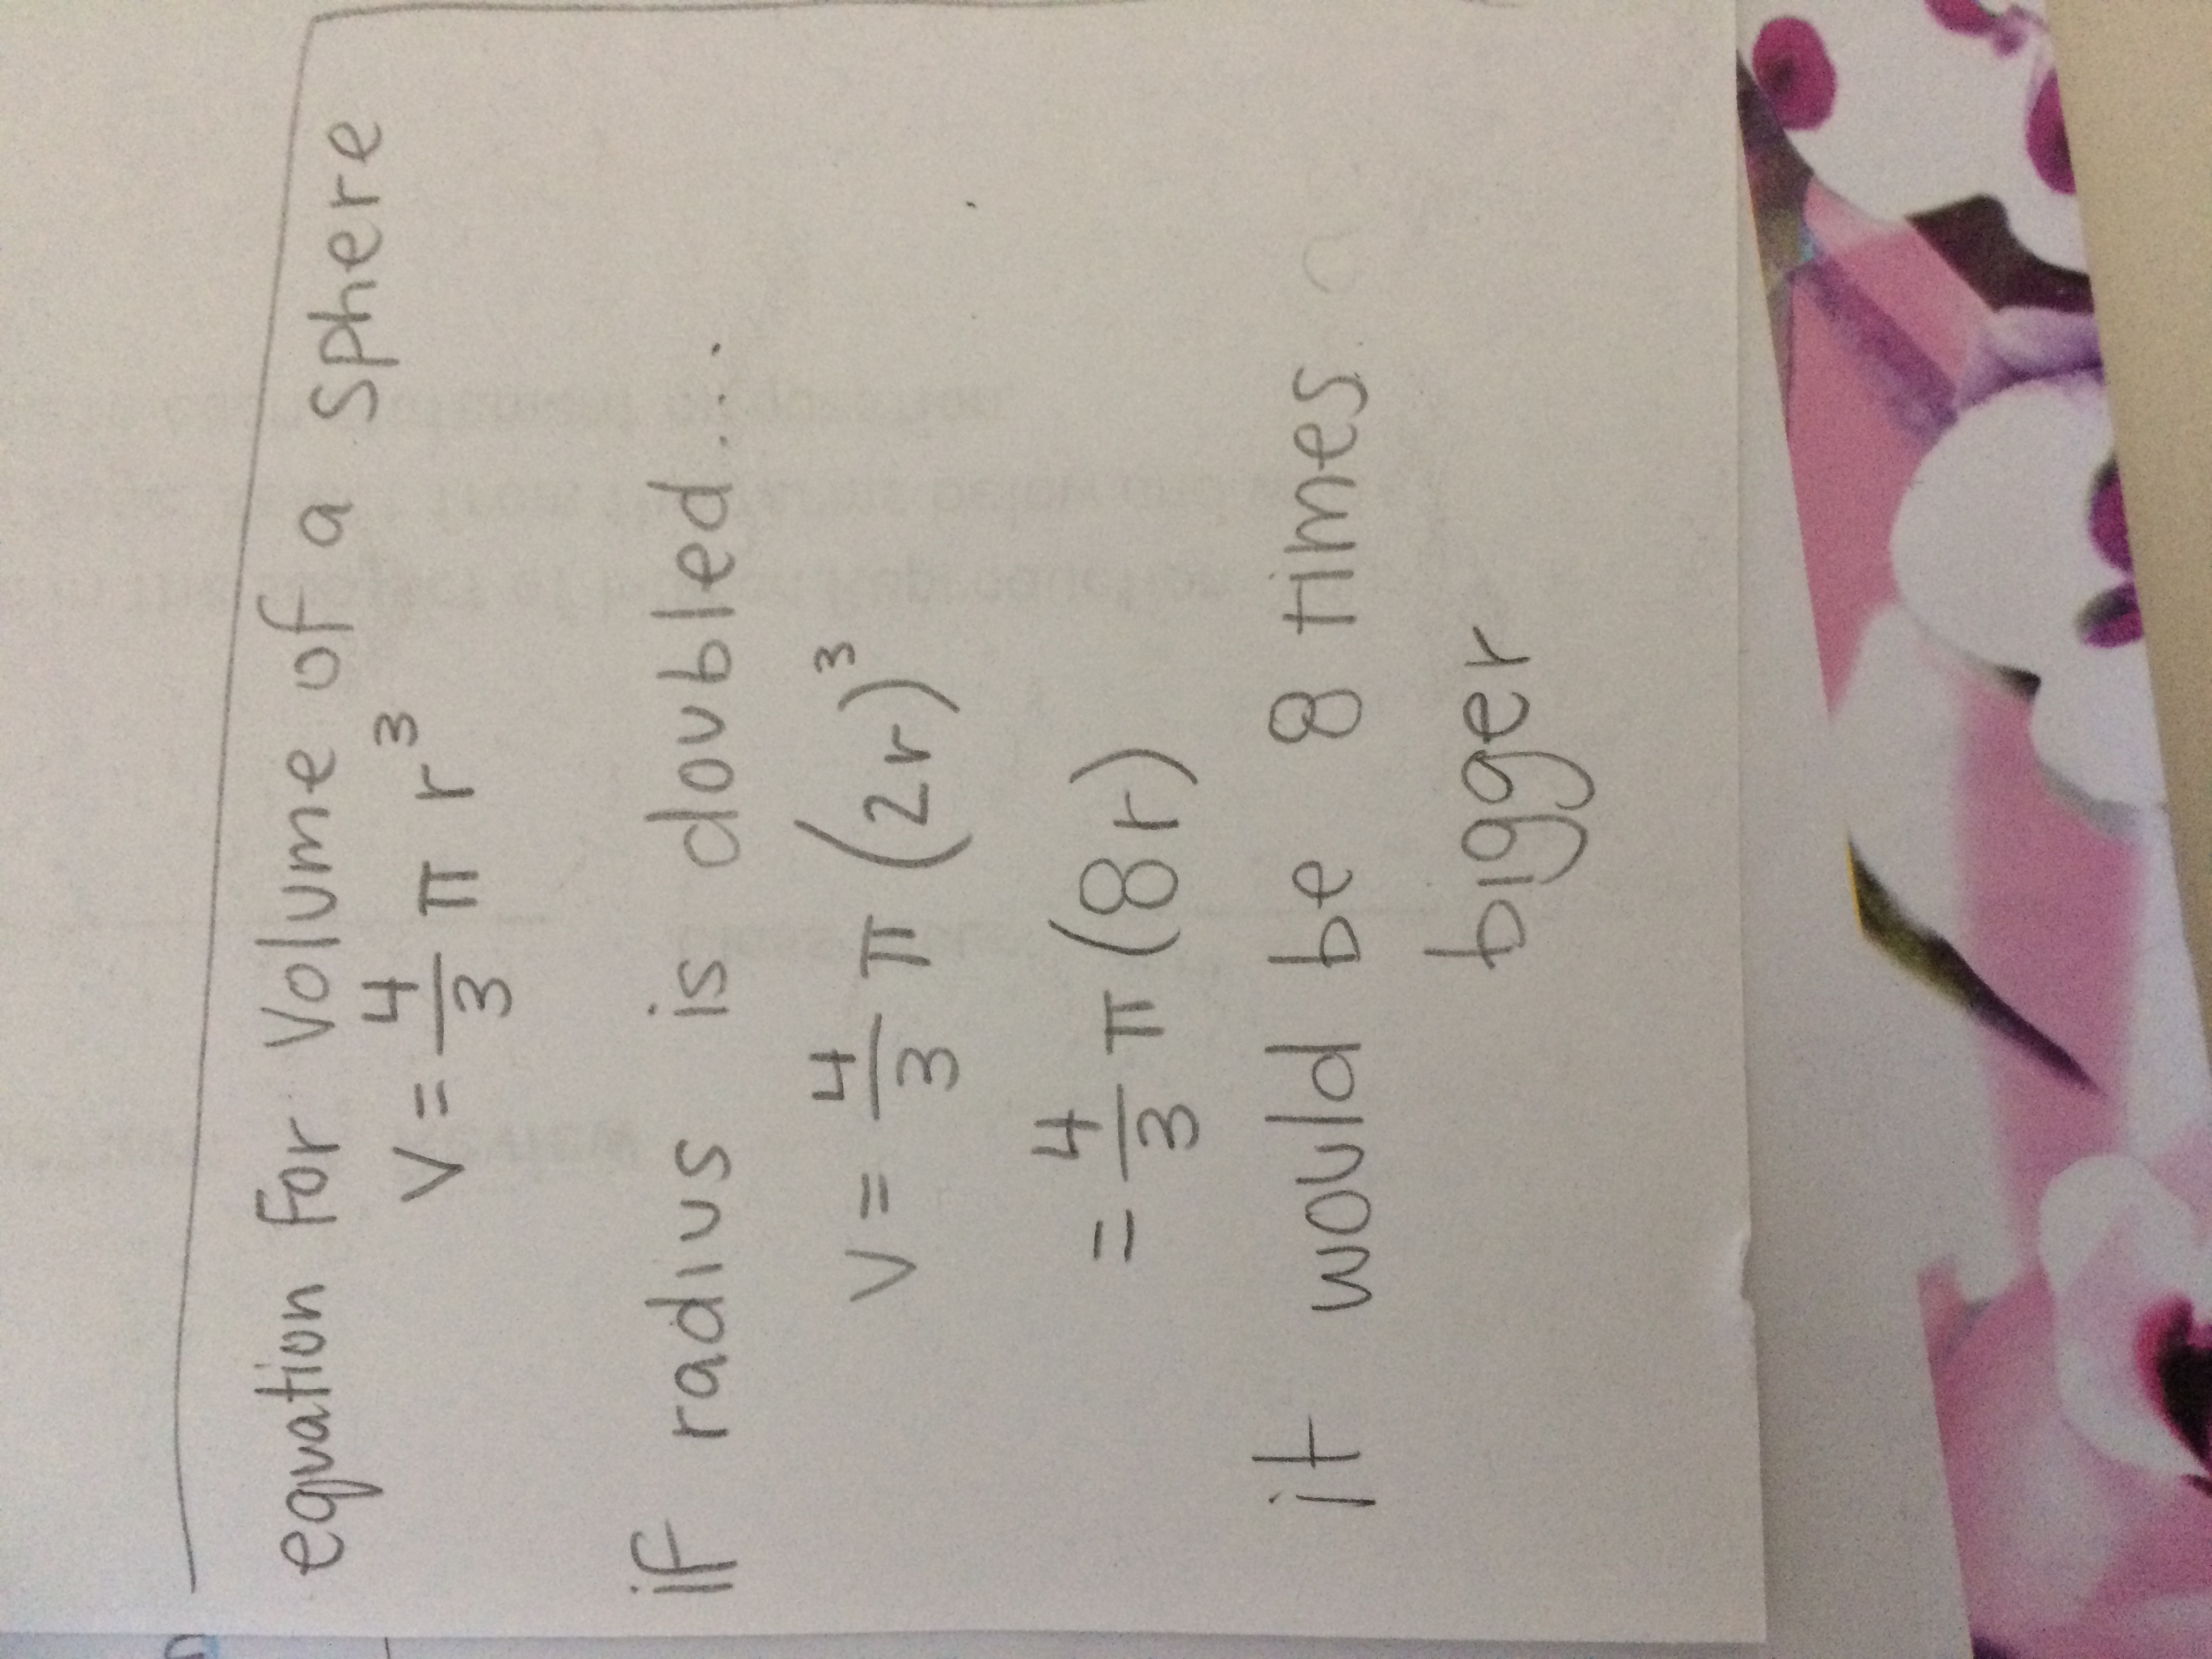 equation for Volume of a sphere
V = 4/3 π r³
if radius is doubled....
V = 4/3 π (2r)³
= 4/3 π (8r)
it would be 8 times
bigger